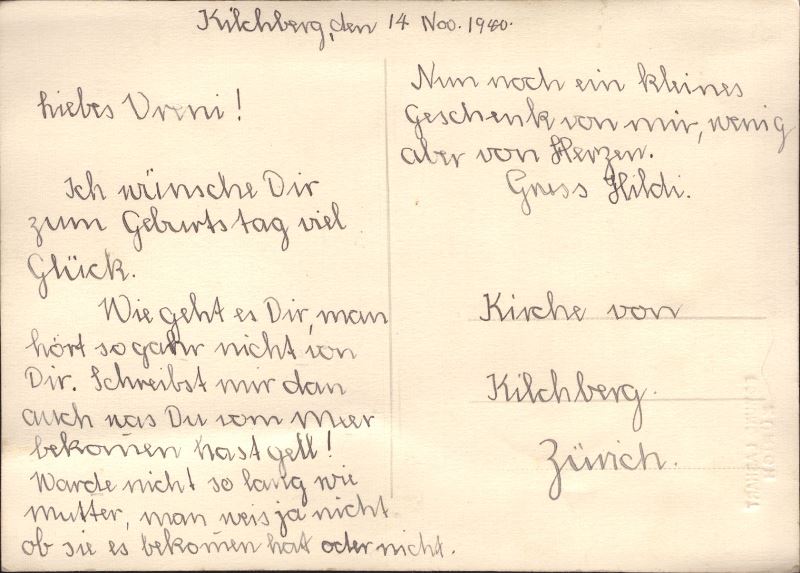 Kilchberg, den 14 Nov. 1940.
Liebes Vreni!
Ich wünsche Dir
zum Geburtstag viel
Glück.
Wie geht es Dir, man
hört so gahr nicht von
Dir. Schreibst mir dan
auch was Du vom
bekom̄en hast gell!
Warde nicht so lang wie
Mutter, man weis ja nicht
ob sie es bekom̄en hat oder nicht.
Nun noch ein kleines
Geschenk von mir, wenig
aber von Herzen.
Gruss Hildi.
Kirche von
Kilchberg.
Zürich.